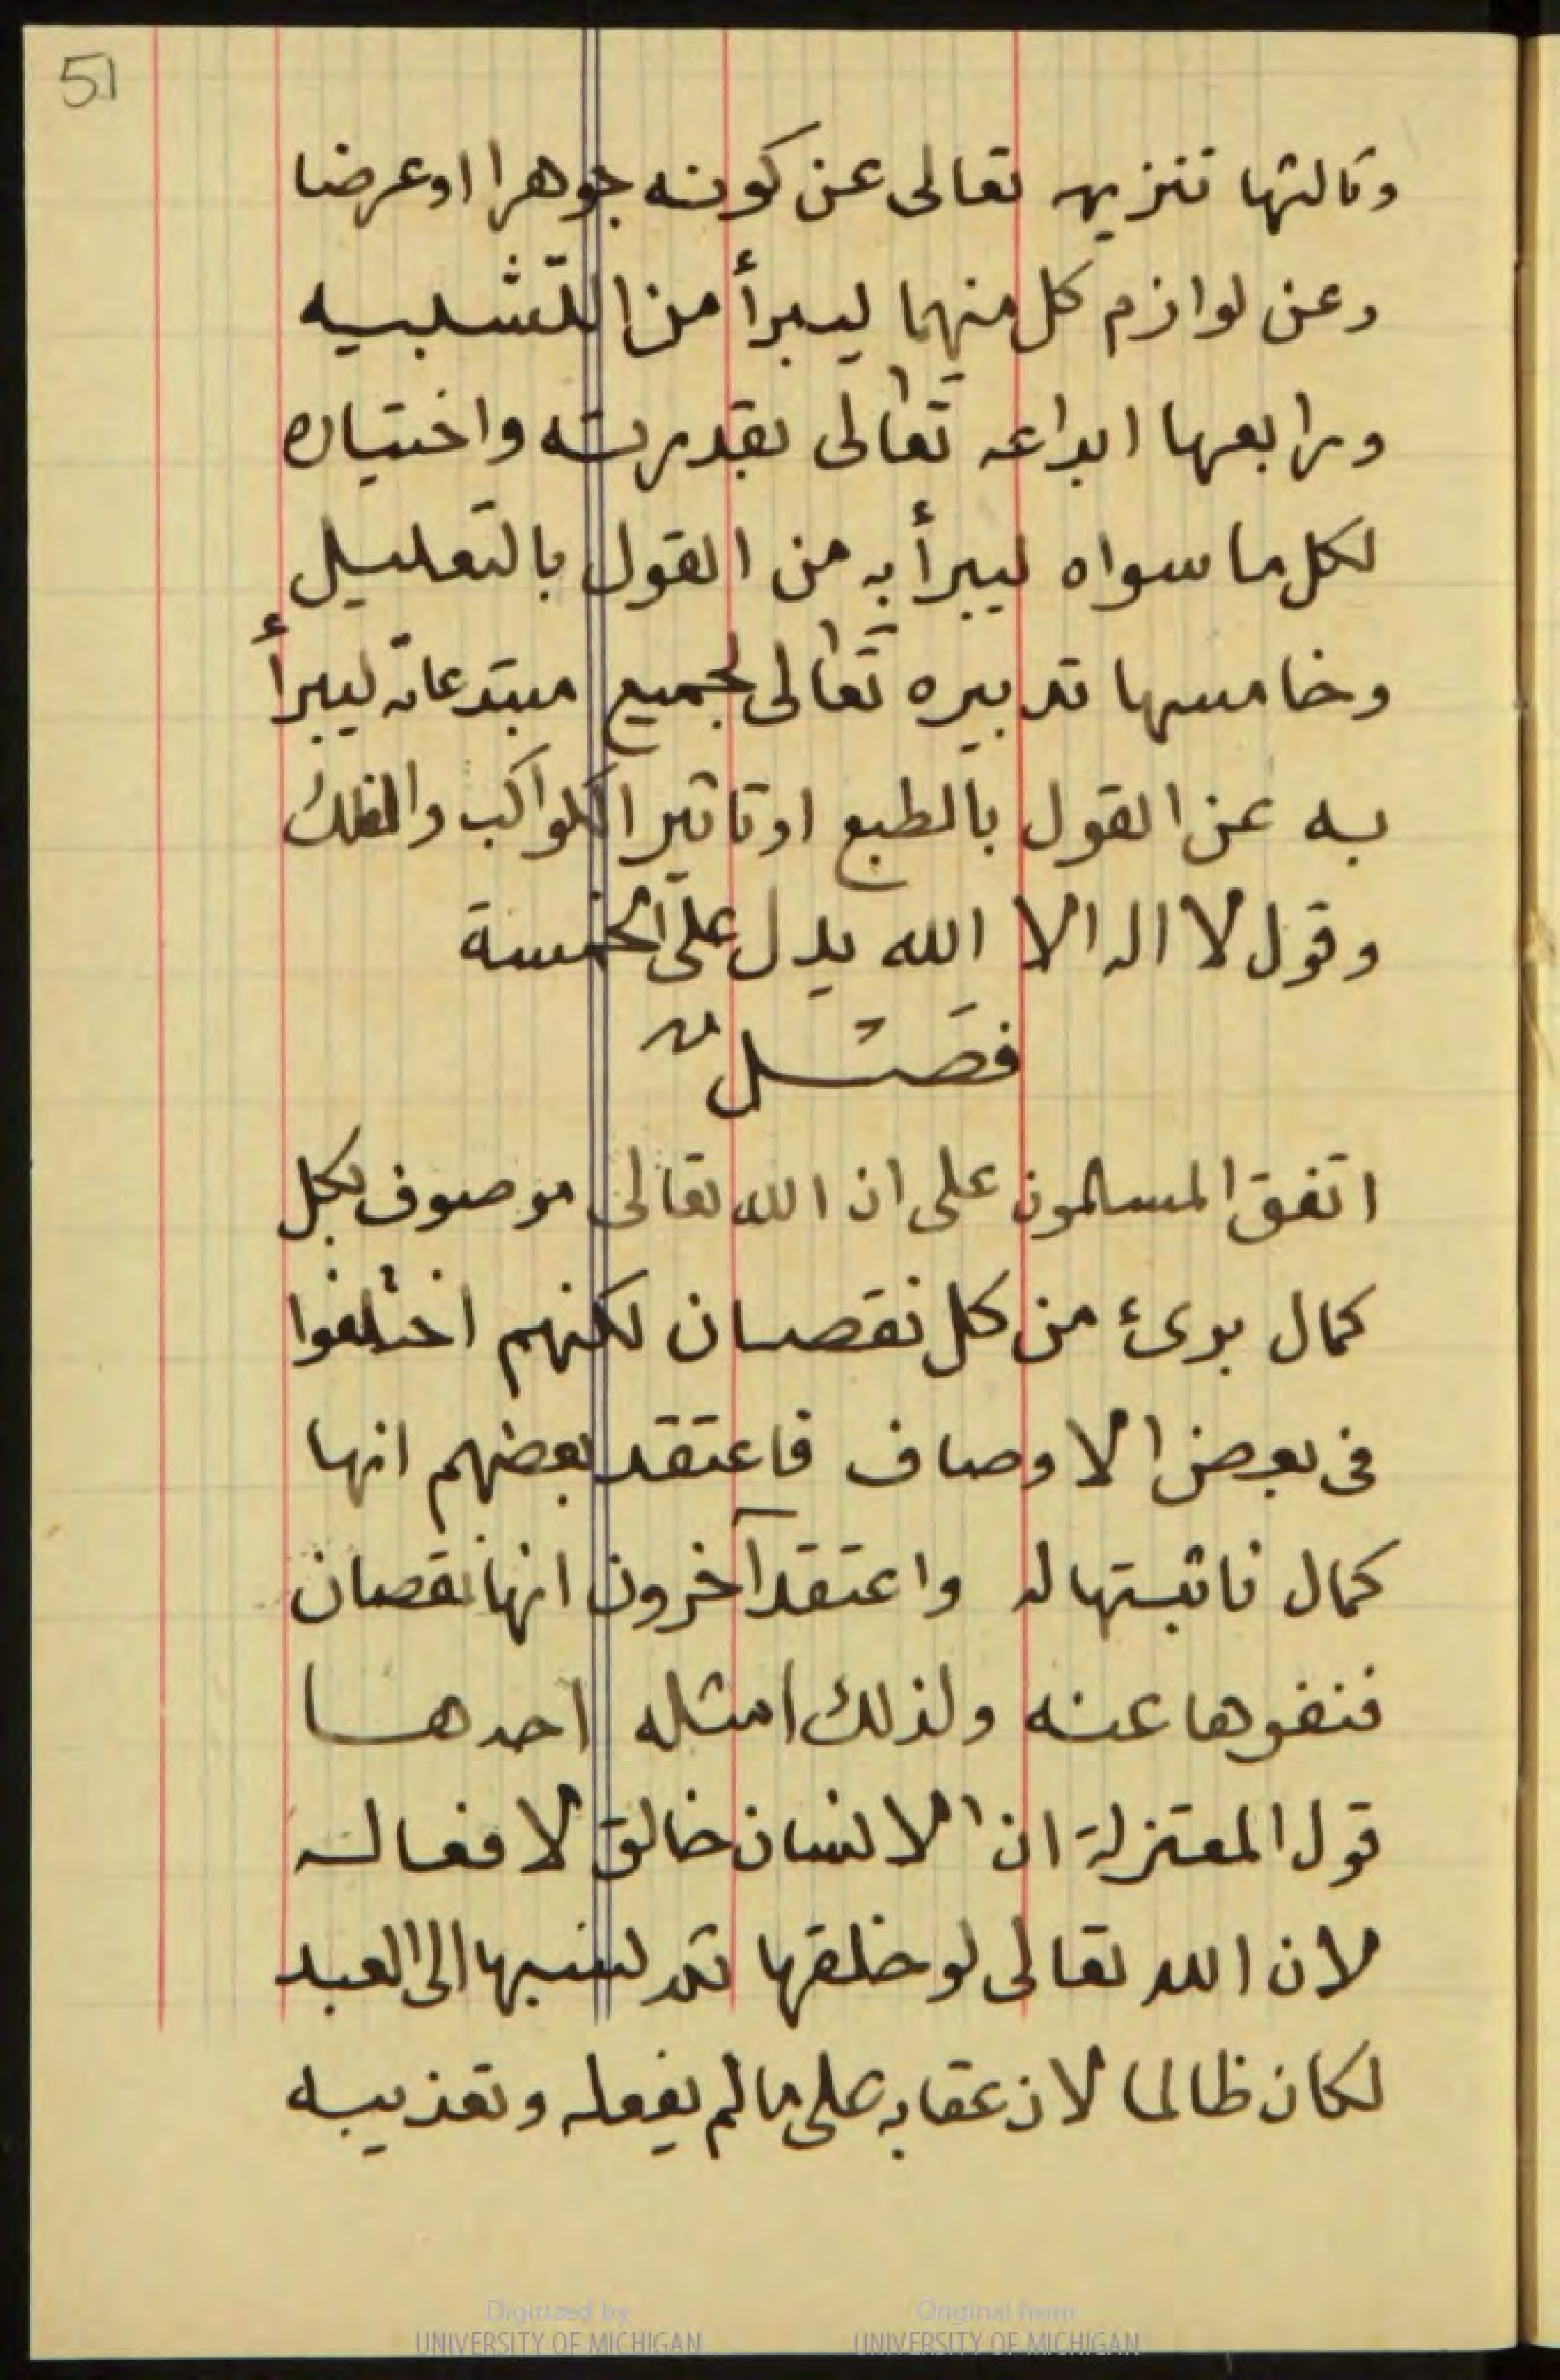 51
وثالثها تنزيهه تعالى عن كونه جوهرا او عرضا
وعن لوازم كل منهما ليبرأ من التشبيه
ورابعها ابداعه تعالى بقدرته واختياره
لكل ما سواه ليبرأ به من القول بالتعليل
وخامسها تدبيره تعالى لجميع مبتدعاته ليبرأ
به عن القول بالطبع او تاثير الكواكب والفلك
وقول لا اله الا الله يدل على الخمسة
فصل
اتفق المسلمون على ان الله تعالى موصوف بكل
كمال برئ من كل نقصان لكنهم اختلفوا
فى بعض الاوصاف فاعتقد بعضهم انها
كمال فاثبتها له واعتقد آخرون انها نقصان
فنفوها عنه ولذلك امثله احدها
قول المعتزلة ان الانسان خالق لافعاله
لان الله تعالى لو خلقها ثم نسبها الى العبد
لكان ظالما لان عقابه على ما لم يفعله وتعذيبه
Digitized by
UNIVERSITY OF MICHIGAN
Original from
UNIVERSITY OF MICHIGAN